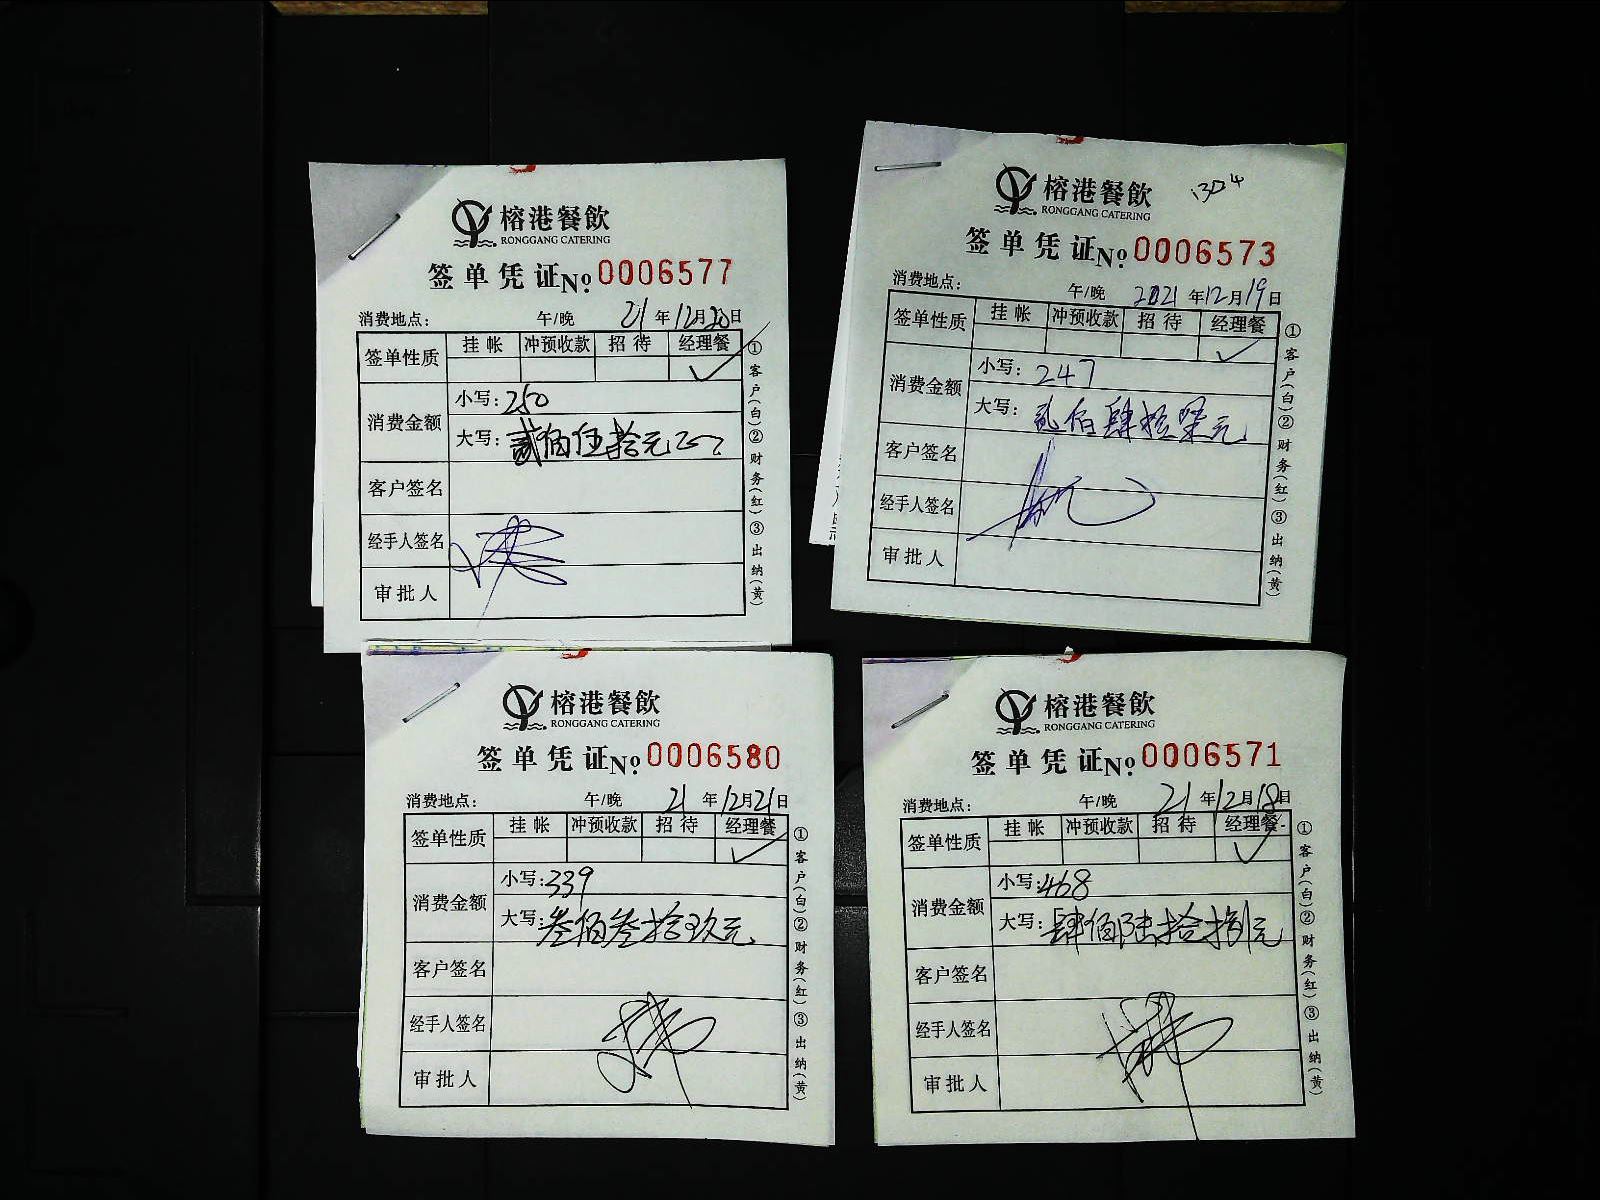 榕港餐飲
RONGGANG CATERING
签单凭证No.0006577
消费地点： 午/晚 21年12月20日
签单性质 挂帐 冲预收款 招待 经理餐
消费金额 小写：250
大写：贰佰伍拾元
客户签名
经手人签名
审批人
①客户(白)②财务(红)③出纳(黄)
1304
榕港餐飲
RONGGANG CATERING
签单凭证No.0006573
消费地点： 午/晚 2021年12月19日
签单性质 挂帐 冲预收款 招待 经理餐
消费金额 小写：247
大写：贰佰肆拾柒元
客户签名
经手人签名
审批人
①客户(白)②财务(红)③出纳(黄)
榕港餐飲
RONGGANG CATERING
签单凭证No.0006580
消费地点： 午/晚 21年12月21日
签单性质 挂帐 冲预收款 招待 经理餐
消费金额 小写：339
大写：叁佰叁拾玖元
客户签名
经手人签名
审批人
①客户(白)②财务(红)③出纳(黄)
榕港餐飲
RONGGANG CATERING
签单凭证No.0006571
消费地点： 午/晚 21年12月18日
签单性质 挂帐 冲预收款 招待 经理餐
消费金额 小写：468
大写：肆佰陆拾捌元
客户签名
经手人签名
审批人
①客户(白)②财务(红)③出纳(黄)